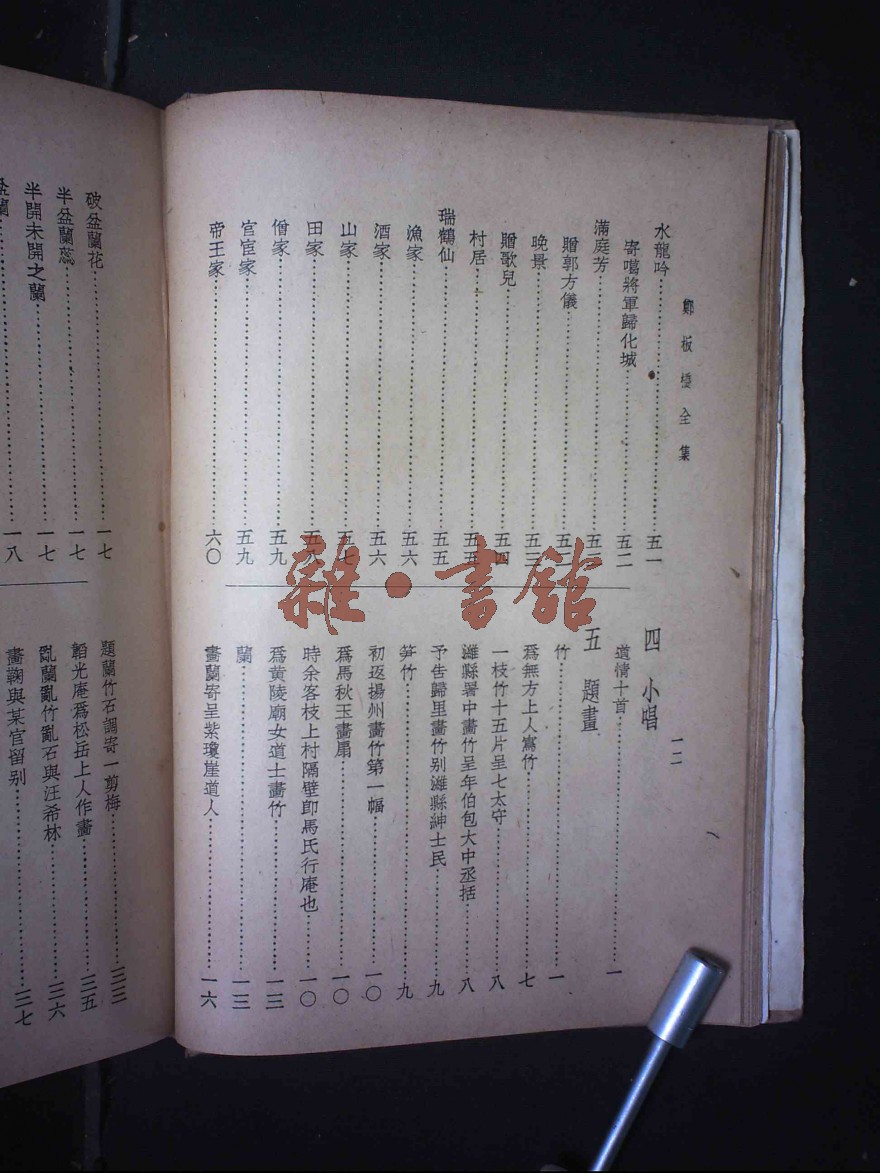 鄭板橋全集
水龍吟 五一
寄噶將軍歸化城 五二
滿庭芳 五二
贈郭方儀 五二
晚景 五三
贈歌兒 五四
村居 五五
瑞鶴仙 五五
漁家 五六
酒家 五六
山家 五七
田家 五八
僧家 五九
官宦家 五九
帝王家 六〇
一二
四 小唱
道情十首 一
五 題畫
竹 一
爲無方上人寫竹 七
一枝竹十五片呈七太守 八
濰縣署中畫竹呈年伯包大中丞括 八
予告歸里畫竹別濰縣紳士民 九
笋竹 九
初返揚州畫竹第一幅 一〇
爲馬秋玉畫扇 一〇
時余客枝上村隔壁卽馬氏行庵也 一〇
爲黄陵廟女道士畫竹 一三
蘭 一三
畫蘭寄呈紫瓊崖道人 一六
破盆蘭花 一七
半盆蘭蕊 一七
半開未開之蘭 一七
盆蘭 一八
題蘭竹石調寄一剪梅 三三
韜光庵爲松岳上人作畫 三五
亂蘭亂竹亂石與汪希林 三六
畫鞠與某官留别 三七
雜·書館